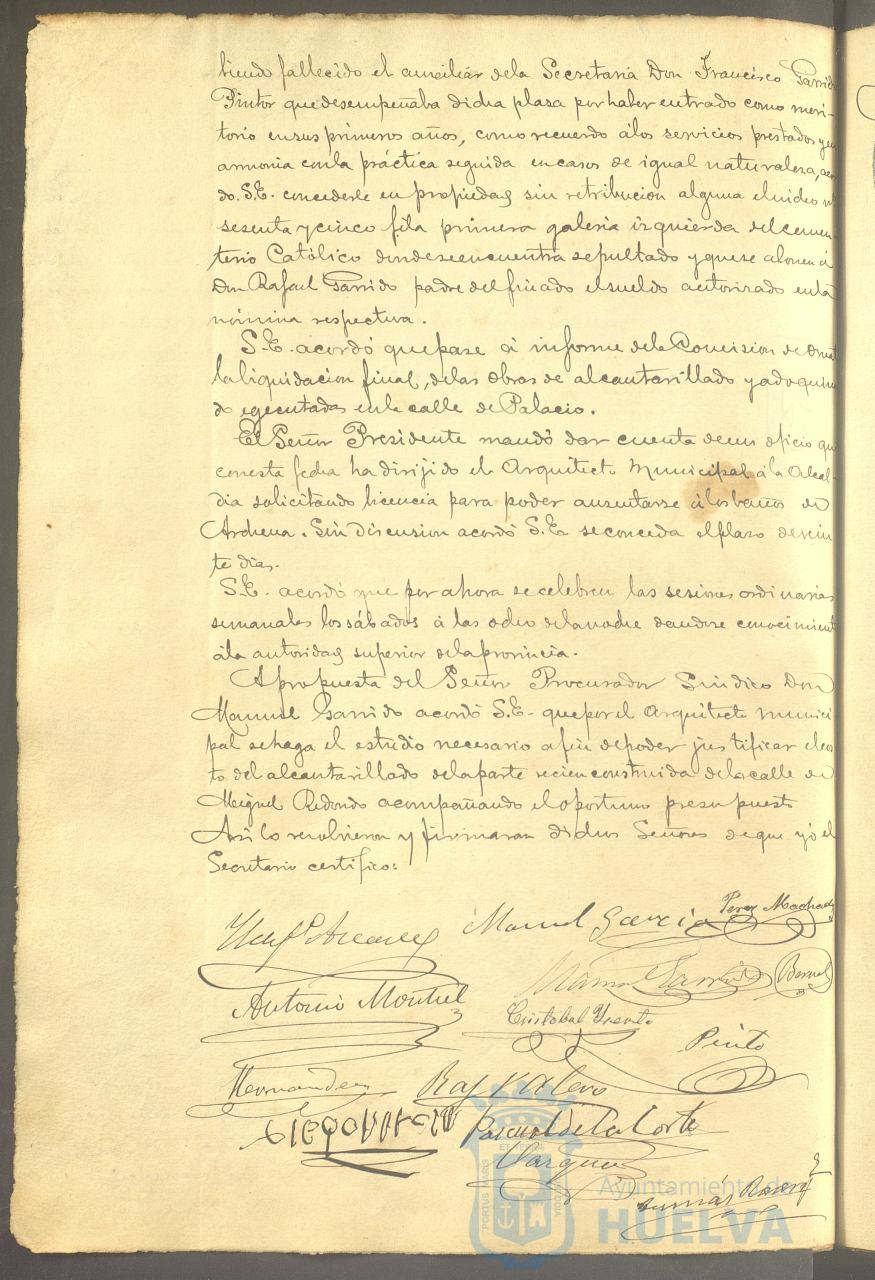 biendo fallecido el auxiliar dela Secretaria Don Francisco Garrido
Pintor que desempeñaba dicha plaza por haber entrado como meri-
torio en sus primeros años, como recuerdo á los servicios prestados y en
armonia con la práctica seguida en casos de igual naturaleza, acor
do S.E. concederle en propiedad sin retribucion alguna el nicho nº
sesenta y cinco fila primera galeria izquierda del cemen
terio Católico donde se encuentra sepultado y que se abone á
Don Rafael Garrido padre del finado el sueldo autorizado en la
nómina respectiva.
S.E. acordó que pase á informe de la Comision de Ornat
la liquidacion final, de las obras de alcantarillado y adoquina
do egecutadas en la calle de Palacio.
El Señor Presidente mandó dar cuenta de un oficio que
con esta fecha ha dirijido el Arquitecto Municipal á la Alcal-
dia solicitando licencia para poder ausentarse á los baños de
Archena. Sin discusion acordó S.E. se conceda el plazo de vein
te dias.
S.E. acordó que por ahora se celebren las sesiones ordinarias
semanales los sábados á las ocho de la noche dandose conocimiento
á la autoridad superior de la provincia.
A propuesta del Señor Procurador Sindico Don
Manuel Garrido acordó S.E. que por el Arquitecto munici
pal se haga el estudio necesario a fin de poder justificar el cos
to del alcantarillado de la parte recien construida de la calle de
Miguel Redondo acompañando el oportuno presupuesto
Asi lo resolvieron y firmaran dichos Señores de que yó el
Secretario certifico:
Manuel Garcia
Perez Machado
Manuel Garrido
Bernal
Antonio Montiel
Cristobal
Pinto
Hernandez
Raf Valero
Pascual de la Corte
Vazquez
PORTUS MARIS
Ayuntamiento de
HUELVA